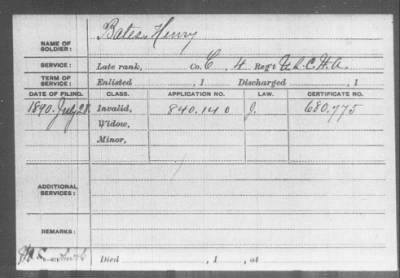 NAME OF SOLDIER: Bates, Henry
SERVICE: Late rank, Co. C, 4 Reg't U.S.C.H.A.
TERM OF SERVICE: Enlisted , 1 Discharged , 1
DATE OF FILING. CLASS. APPLICATION NO. LAW. CERTIFICATE NO.
1890. July 28. Invalid, 840.140 J. 680.775
Widow,
Minor,
ADDITIONAL SERVICES:
REMARKS:
Died , 1 , at